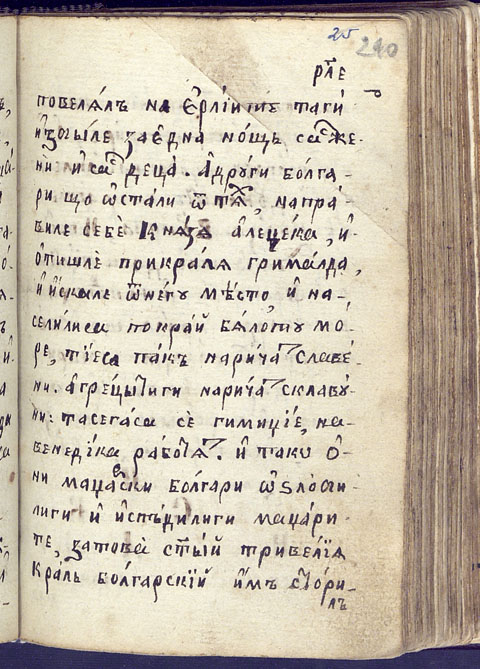 25
240
р҃ле
повелѧлъ на єрлїитıе таги
и҆збыле заєдна нощь саⷭ҇же-
ни и҆ саⷭ҇ деца̀. А други болга-
ри що ѡ҆стали ѿтѧⷯ, напра-
виле себѐ кнѧзѧ а҆лецека, и҆-
ѿишле прикралѧ грималда,
и҆ и҆скале ѿнегу мѣсто, и҆ на-
селилиса покрай бѧлоту мо-
ре, тıеса пакъ наричаⷮ славе-
ни. а҆грецытиги наричаⷮ склаву-
ни: тасегаса сѐ гимиџіе, на-
венедика работѧⷮ. и҆ таку ѻ҆-
ни маџаⷬски болгари ѡ҆ѕлоби-
лиги и҆ и҆спѣдилиги маџари-
те, затова̀ ст҃ый тривелїѧ
краль болгарскїй и҆мъ стори-
лъ